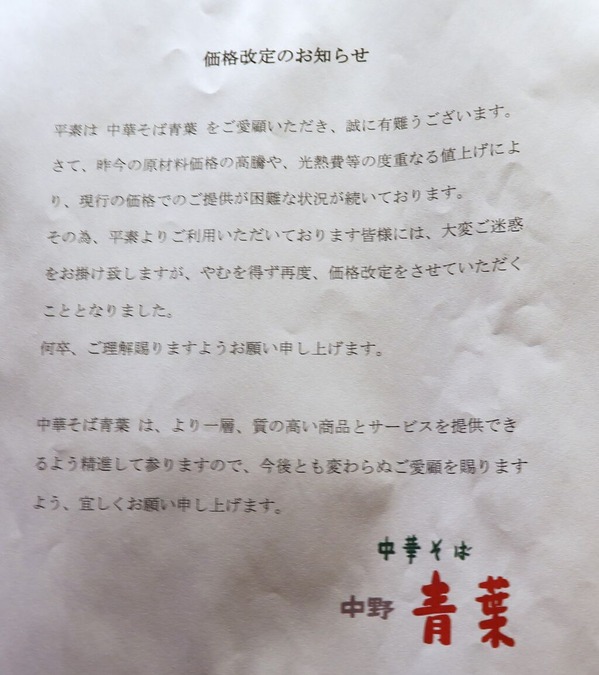 価格改定のお知らせ
平素は 中華そば青葉 をご愛顧いただき、誠に有難うございます。
さて、昨今の原材料価格の高騰や、光熱費等の度重なる値上げによ
り、現行の価格でのご提供が困難な状況が続いております。
その為、平素よりご利用いただいております皆様には、大変ご迷惑
をお掛け致しますが、やむを得ず再度、価格改定をさせていただく
こととなりました。
何卒、ご理解賜りますようお願い申し上げます。
中華そば青葉 は、より一層、質の高い商品とサービスを提供でき
るよう精進して参りますので、今後とも変わらぬご愛顧を賜ります
よう、宜しくお願い申し上げます。
中華そば
中野 青葉